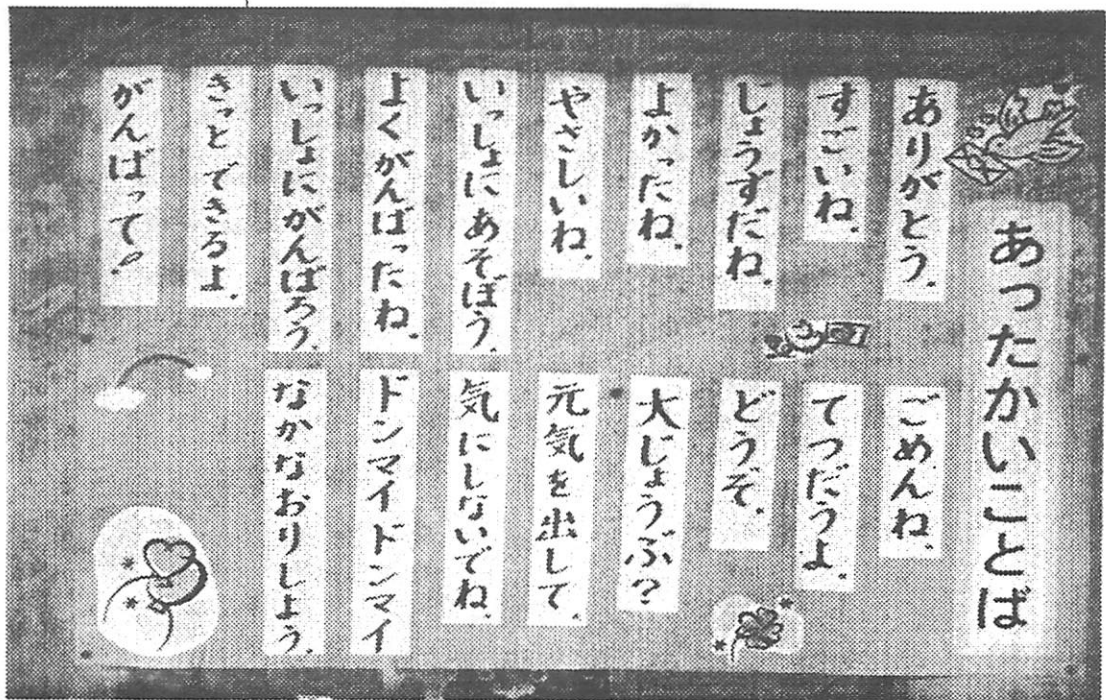 あったかいことば
ありがとう。
すごいね。
じょうずだね。
よかったね。
やさしいね。
いっしょにあそぼう。
よくがんばったね。
いっしょにがんばろう。
きっとできるよ。
がんばって！
ごめんね。
てつだうよ。
どうぞ。
大じょうぶ？
元気を出して。
気にしないでね。
ドンマイドンマイ
なかなおりしよう。